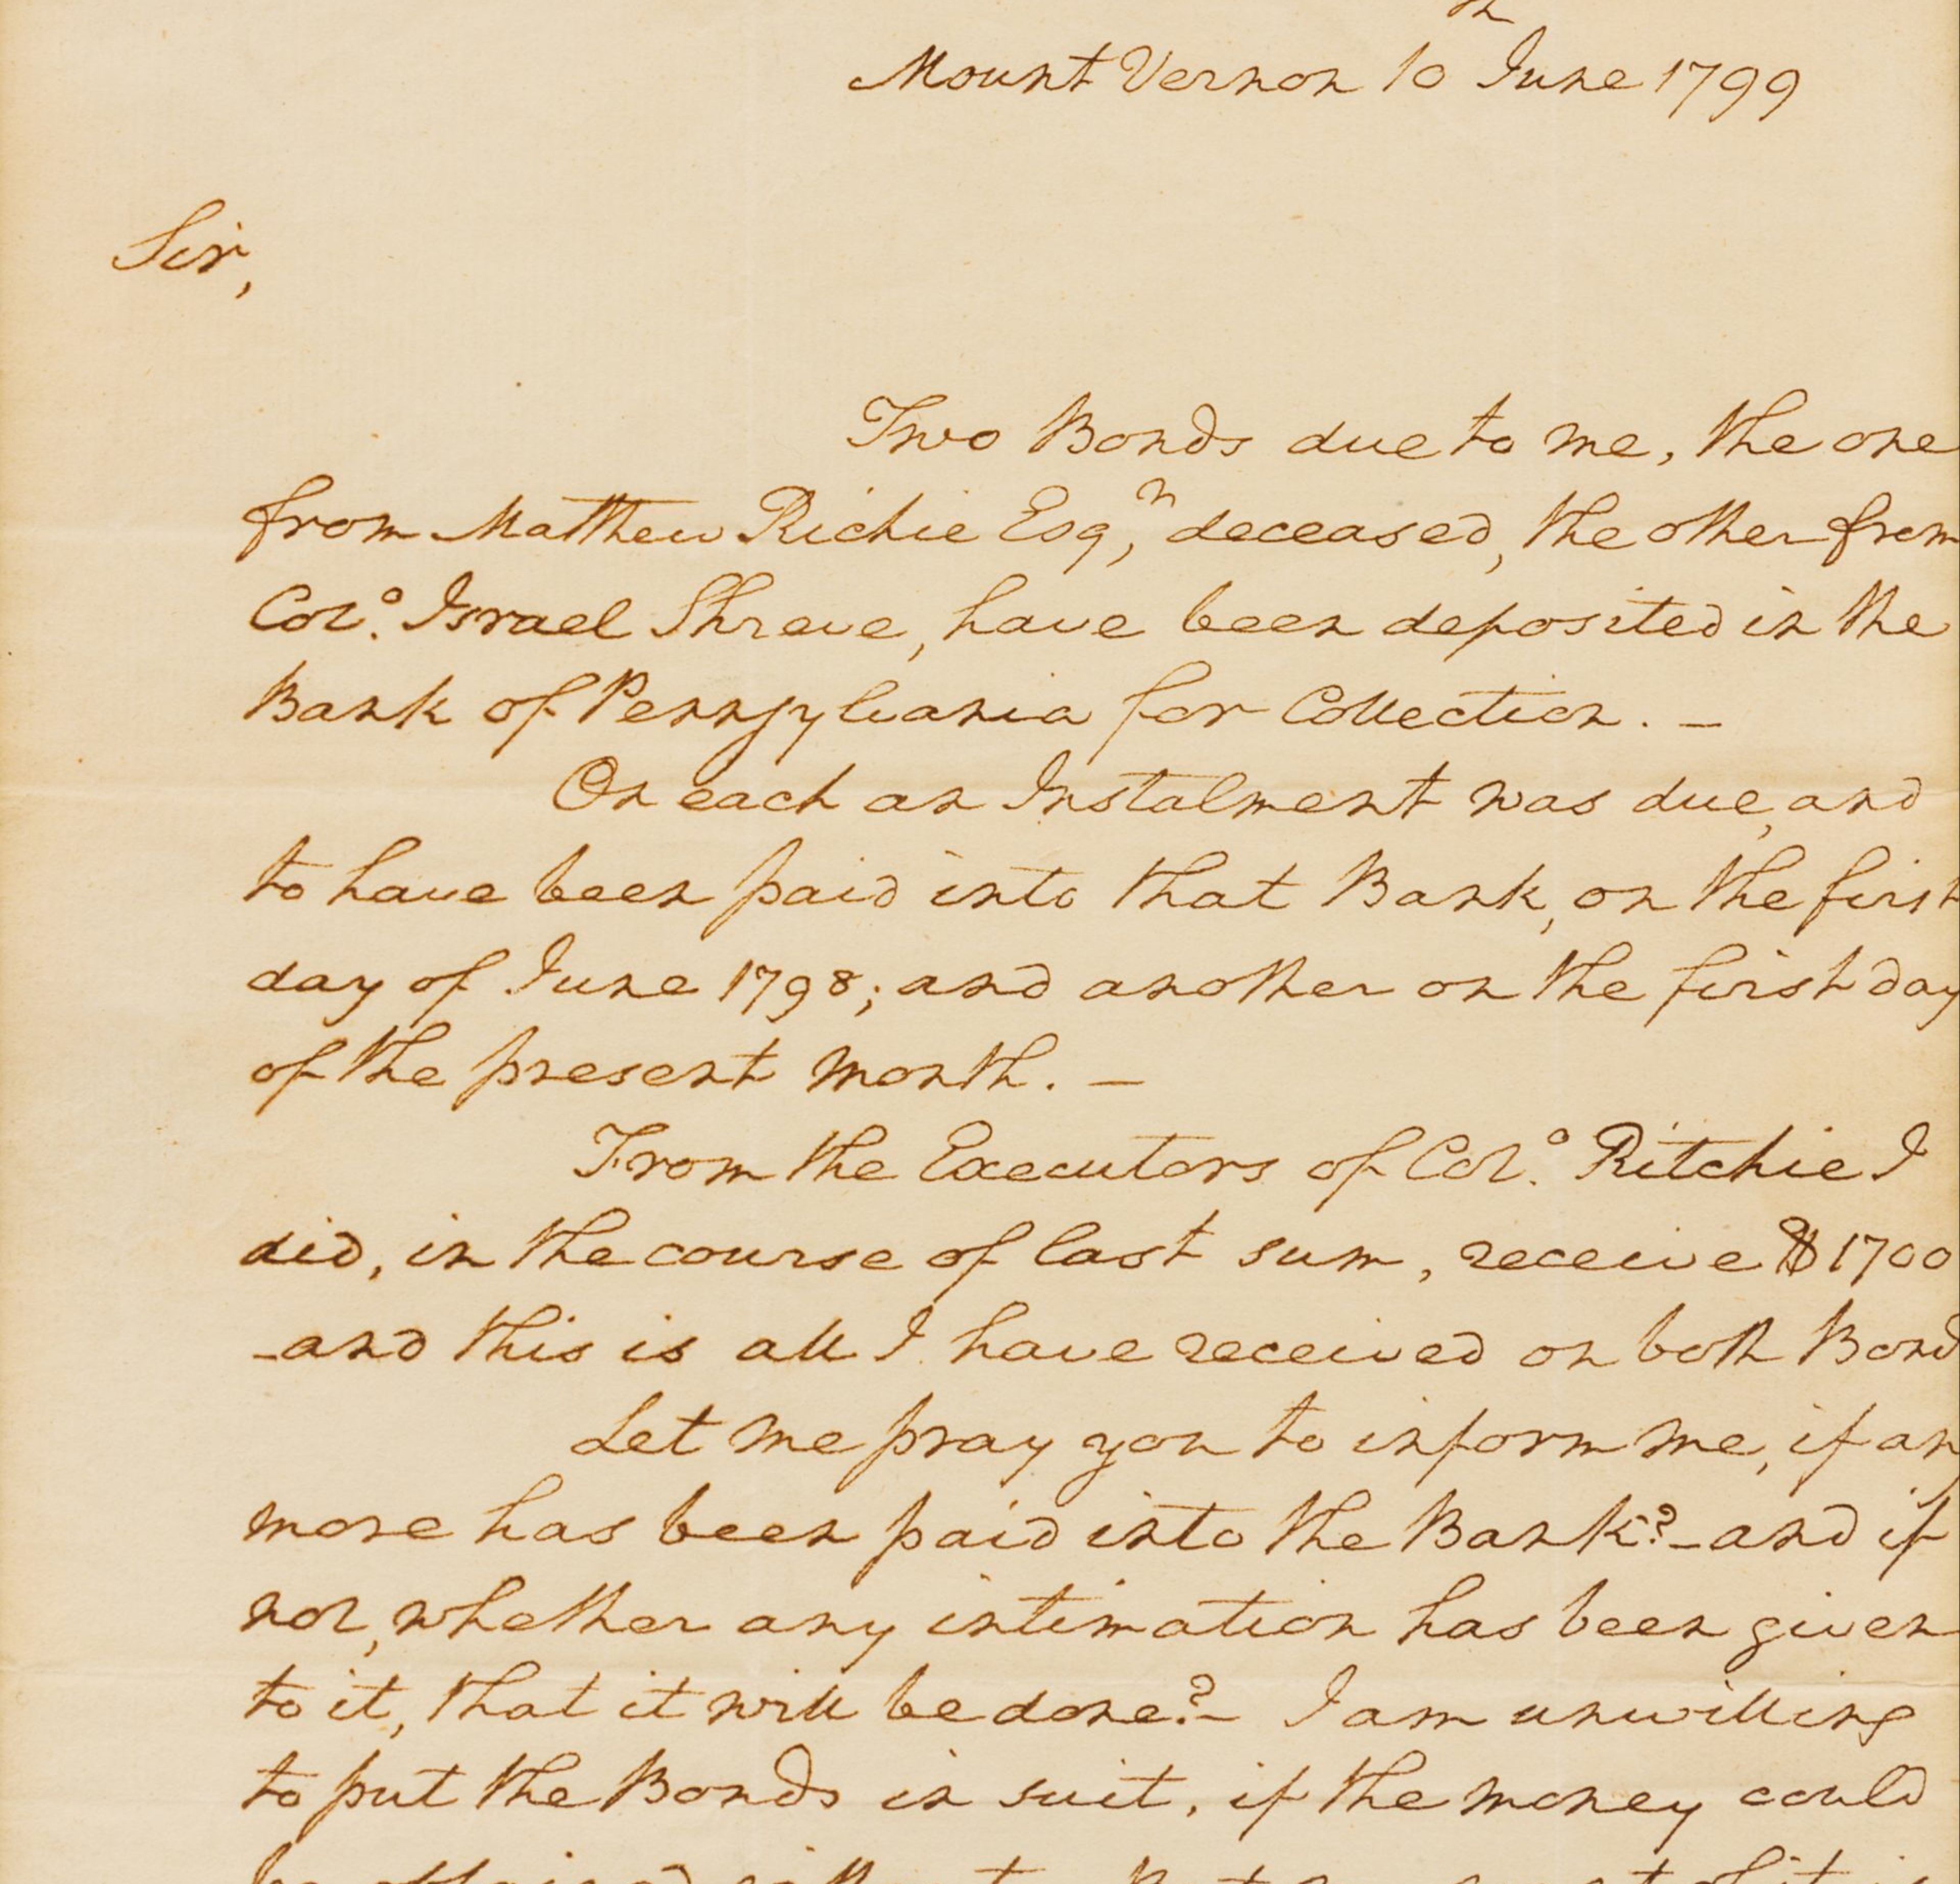 Mount Vernon 10th June 1799
Sir,
Two Bonds due to me, the one
from Matthew Richie Esqr, deceased, the other from
Colo. Israel Shreve, have been deposited in the
Bank of Pennsylvania for Collection. —
On each an Instalment was due, and
to have been paid into that Bank, on the first
day of June 1798; and another on the first day
of the present month. —
From the Executors of Colo. Ritchie I
did, in the course of last sum, receive $1700
-and this is all I have received on both Bond
Let me pray you to inform me, if any
more has been paid into the Bank?-and if
not, whether any intimation has been given
to it, that it will be done?- I am unwilling
to put the Bonds in suit, if the money could